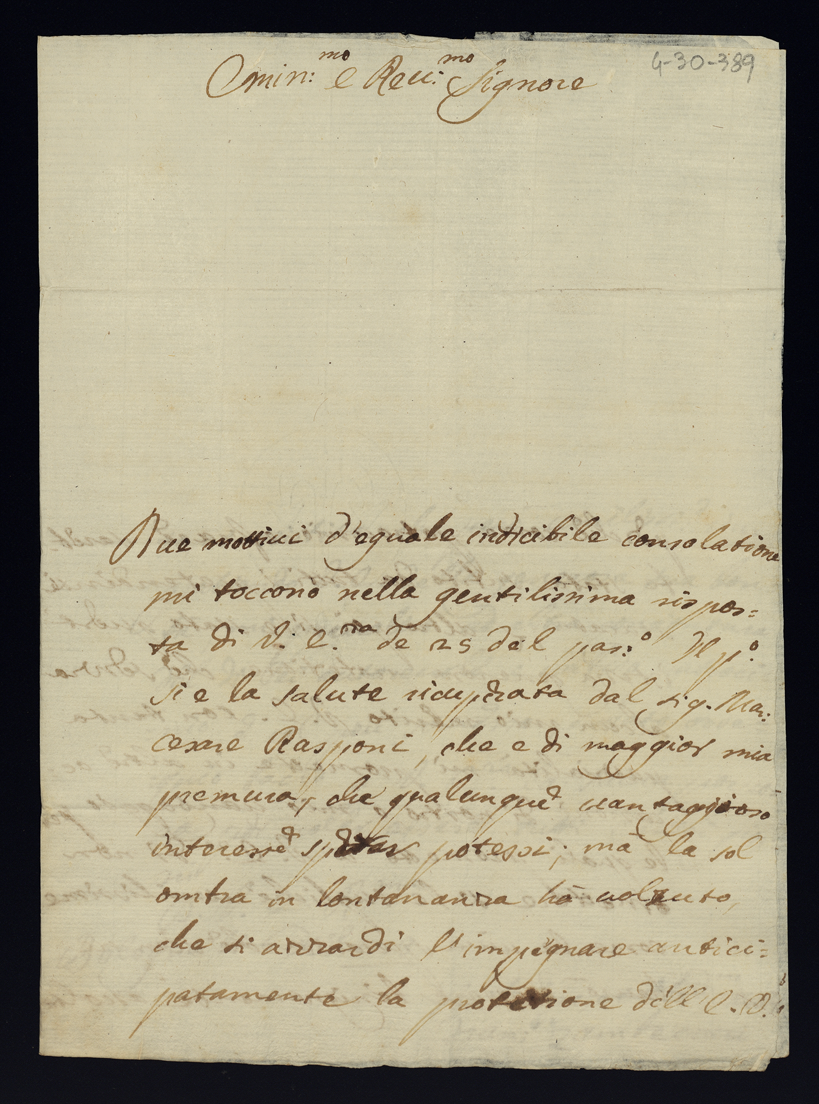 4-30-389
Emin:mo e Reu:mo Signore
Due mottiui d'eguale indicibile consolatione
mi toccono nella gentilissima rispos=
ta di V. E.nza de 25 del pas:o Il p.o
si e la salute ricuperata dal Sig. Mar:
cesare Rasponi, che e di maggior mia
premura, che qualunque uantaggioso
interesse sperar potessi; mà la sol
ombra in lontananza hà uolsuto,
che si azzardi l'impegnare antici=
patamente la protetione dell E. V.